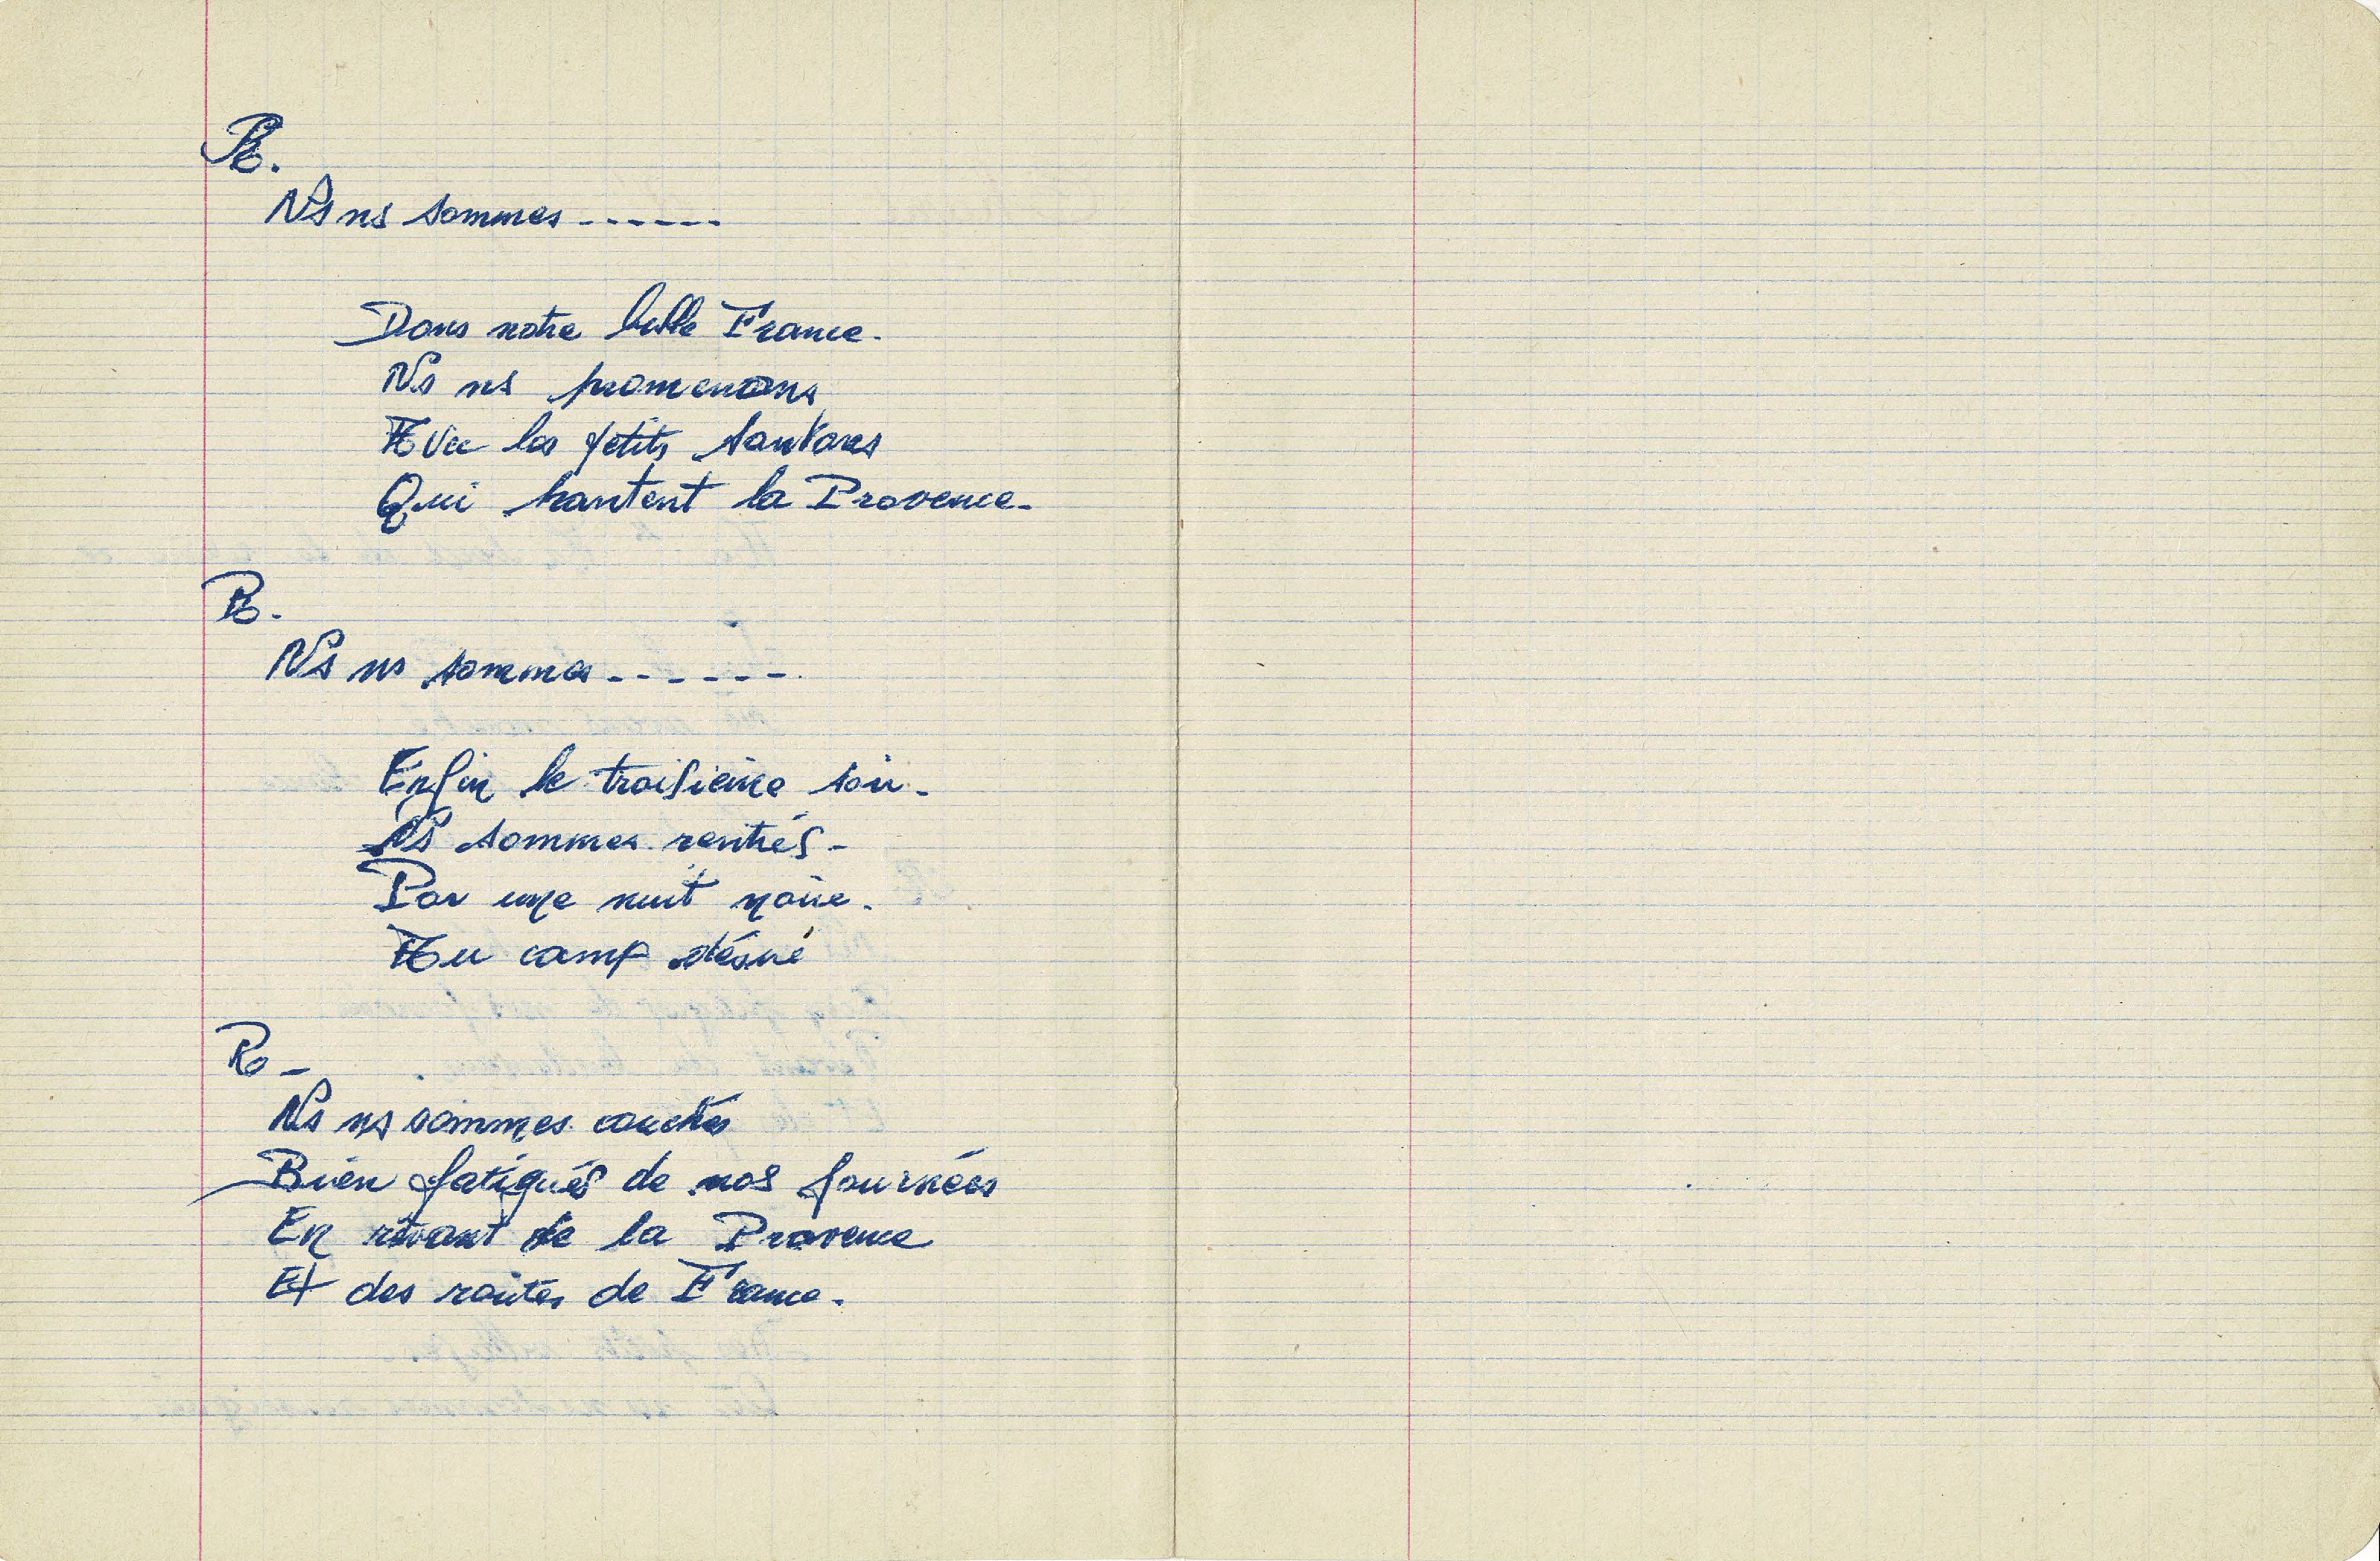 R.
Ns ns sommes ------
Dans notre belle France.
Ns ns promenons
Avec les petits santons
Qui hantent la Provence.
R.
Ns ns sommes ------.
Enfin le troisième soir.
Ns sommes rentrés -
Par une nuit noire.
Au camp désiré
R -
Ns ns sommes couchés
Bien fatigués de nos journées
En rêvant de la Provence
Et des routes de France.